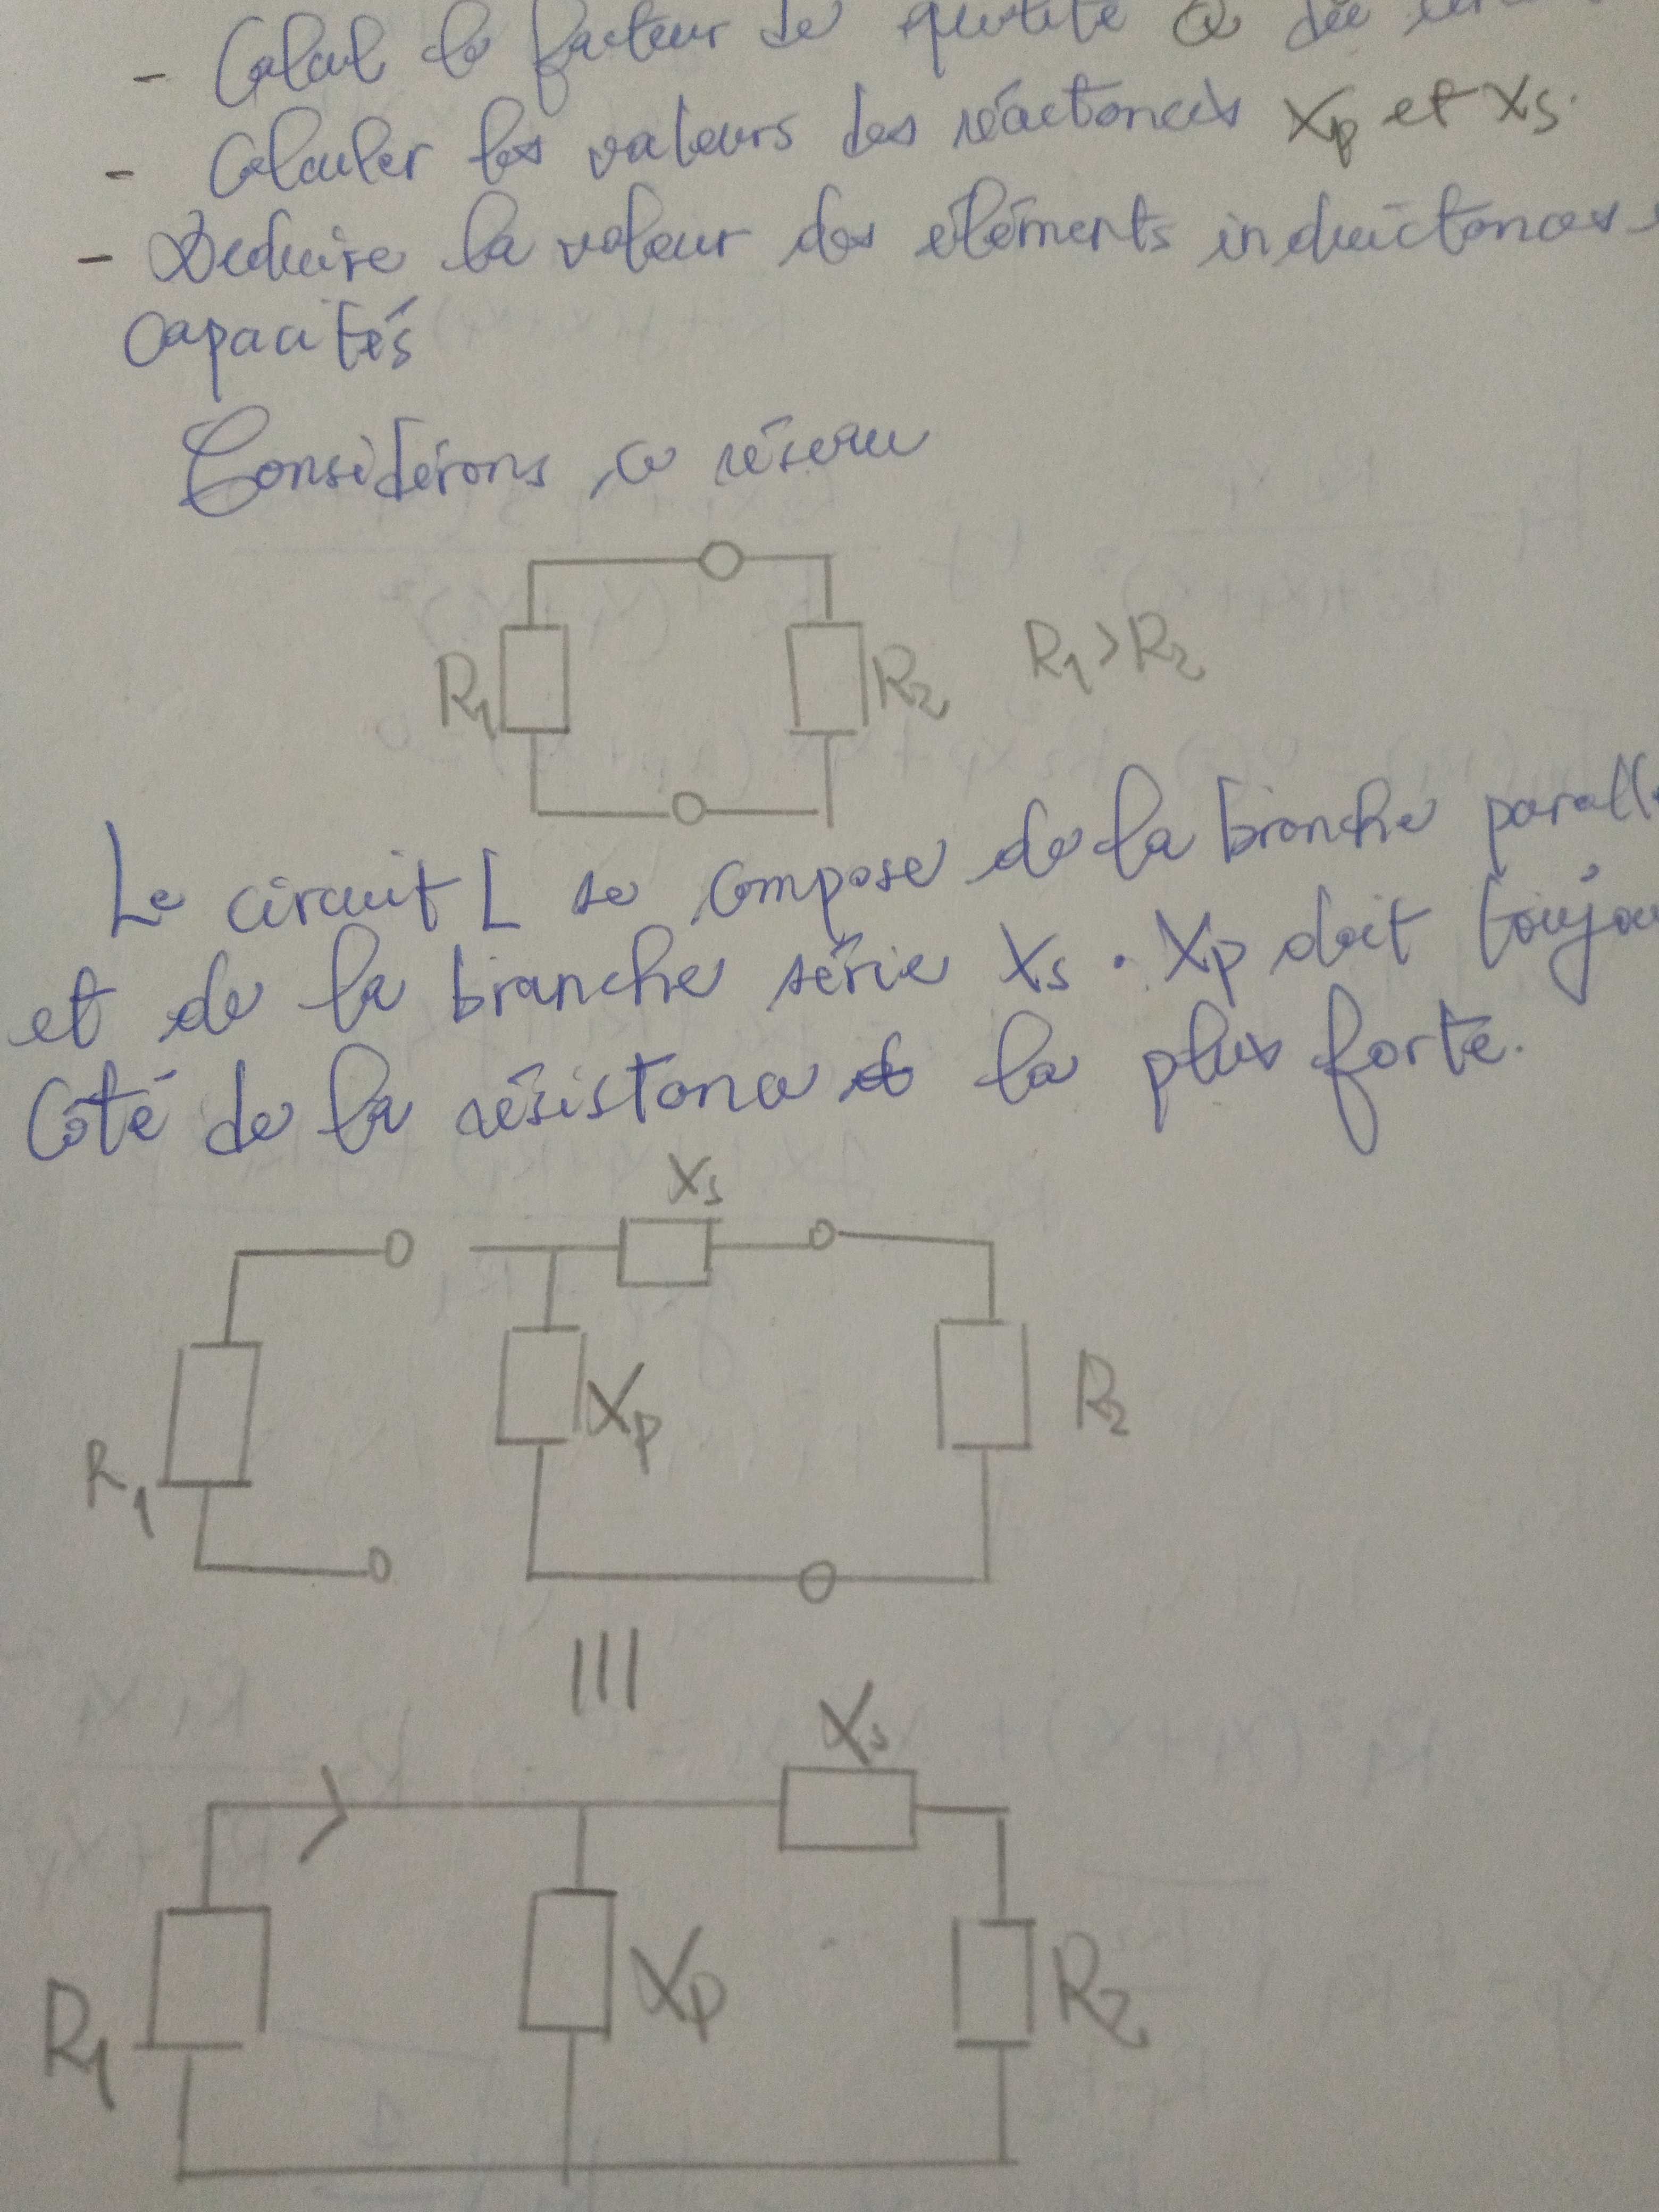 - Calcul le facteur de qualité Q du
- Calculer les valeurs des réactances Xp et Xs.
- Deduire la valeur des éléments inductances
capacités
Considérons ce réseau
R1 R2 R1 > R2
Le circuit L se compose de la branche parall
et de la branche série Xs. Xp doit toujou
Coté de la résistance la plus forte.
Xs
R1 Xp R2
Xs
R1 Xp R2